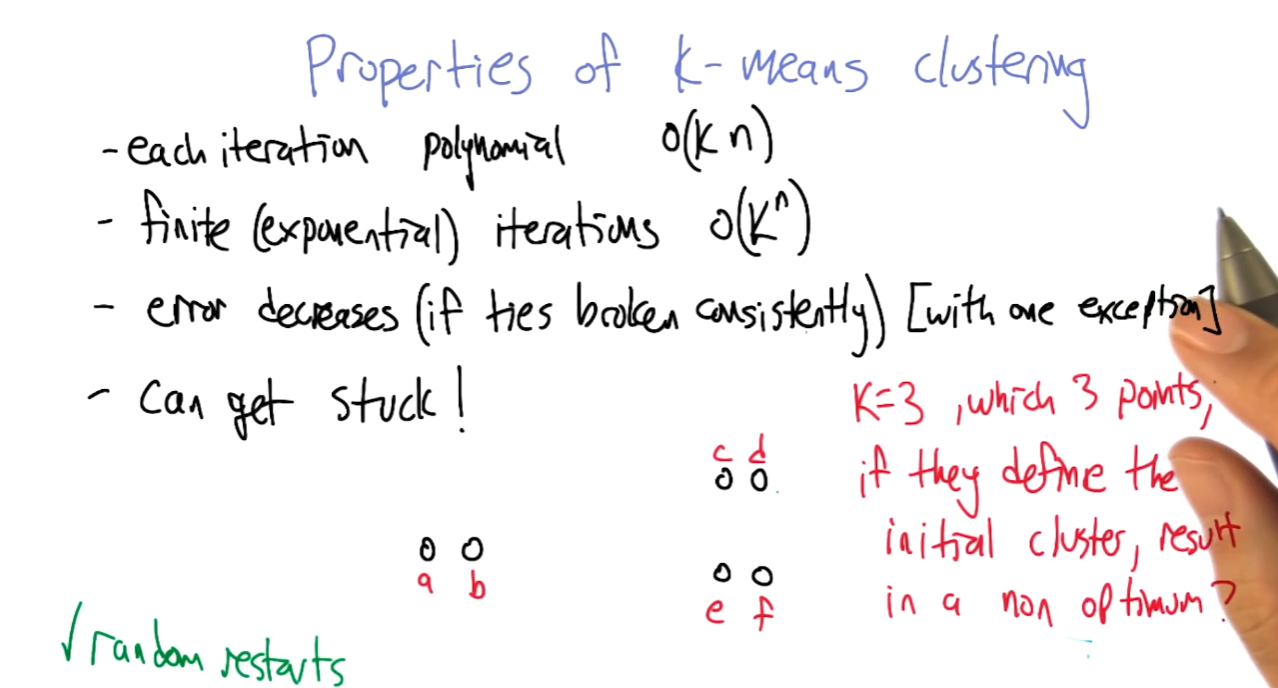 Properties of k-means clustering
- each iteration polynomial O(kn)
- finite (exponential) iterations O(kⁿ)
- error decreases (if ties broken consistently) [with one exception]
- can get stuck!
K=3, which 3 points,
if they define the
initial cluster, result
in a non optimum?
c d
a b
e f
√ random restarts